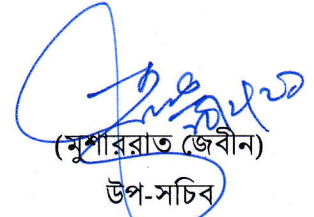 (মুশাররাত জেবীন)
উপ-সচিব